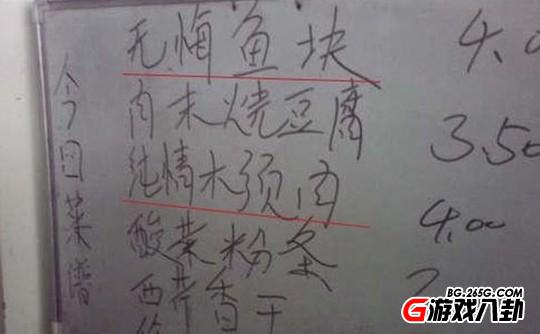 今日菜谱
无悔鱼块 4.0
肉末烧豆腐 3.50
纯情木须肉 4.00
酸菜粉条
西芹香干
BG.265G.COM
游戏八卦